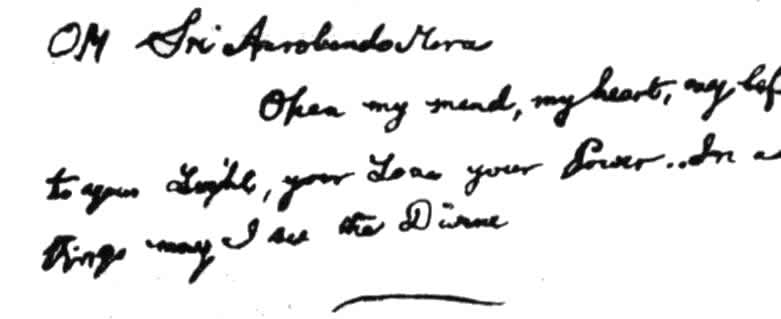 OM Sri Aurobindo Mira
Open my mind, my heart, my life
to your Light, your Love your Power.. In a
things may I see the Divine